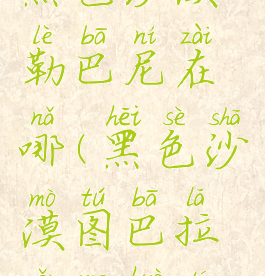 lè bā ní zài
勒巴尼在
nǎ hēi sè shā
哪(黑色沙
mò tú bā lā
漠图巴拉